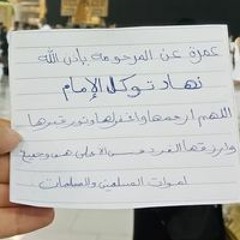 عمرة عن المرحومة بإذن الله
نهاد توكل الإمام
اللهم ارحمها واغفر لها ونور قبرها
وارزقها الفردوس الأعلى هي وجميع
اموات المسلمين والمسلمات